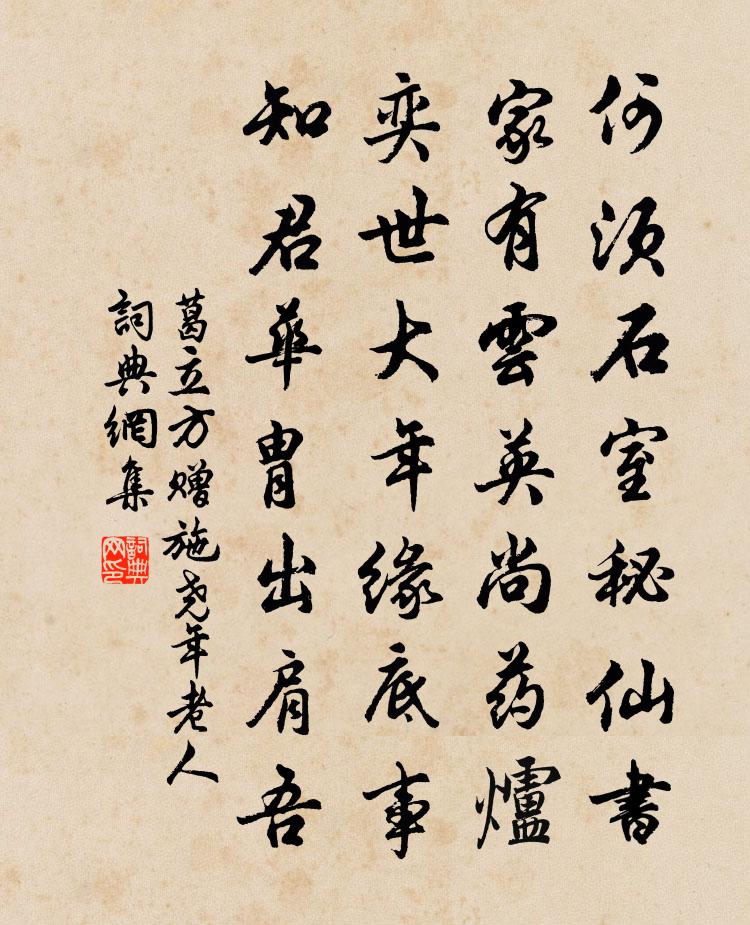 何须石室秘仙書
家有雲英尚药爐
奕世大年缘底事
知君華胄出肩吾
葛立方赠施尧年老人
詞典網集
詞典网印